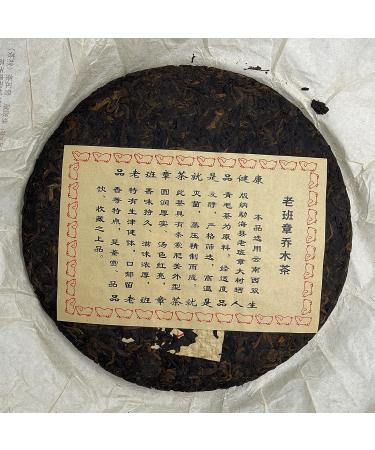 品老班章茶就是品健康
老班章乔木茶
本品选用云南西双
版纳勐海县老班章大村晒
青毛茶为原料，经适度
发酵，严格筛选，高温
灭菌，蒸压精制而成，
此茶具有条索肥美外型
圆润厚实，汤色红亮，
香味持久，滋味浓厚，
特有生津健体，口留
香等特点，是鉴赏、品
饮、收藏之上品。
品老班章茶就是品人生